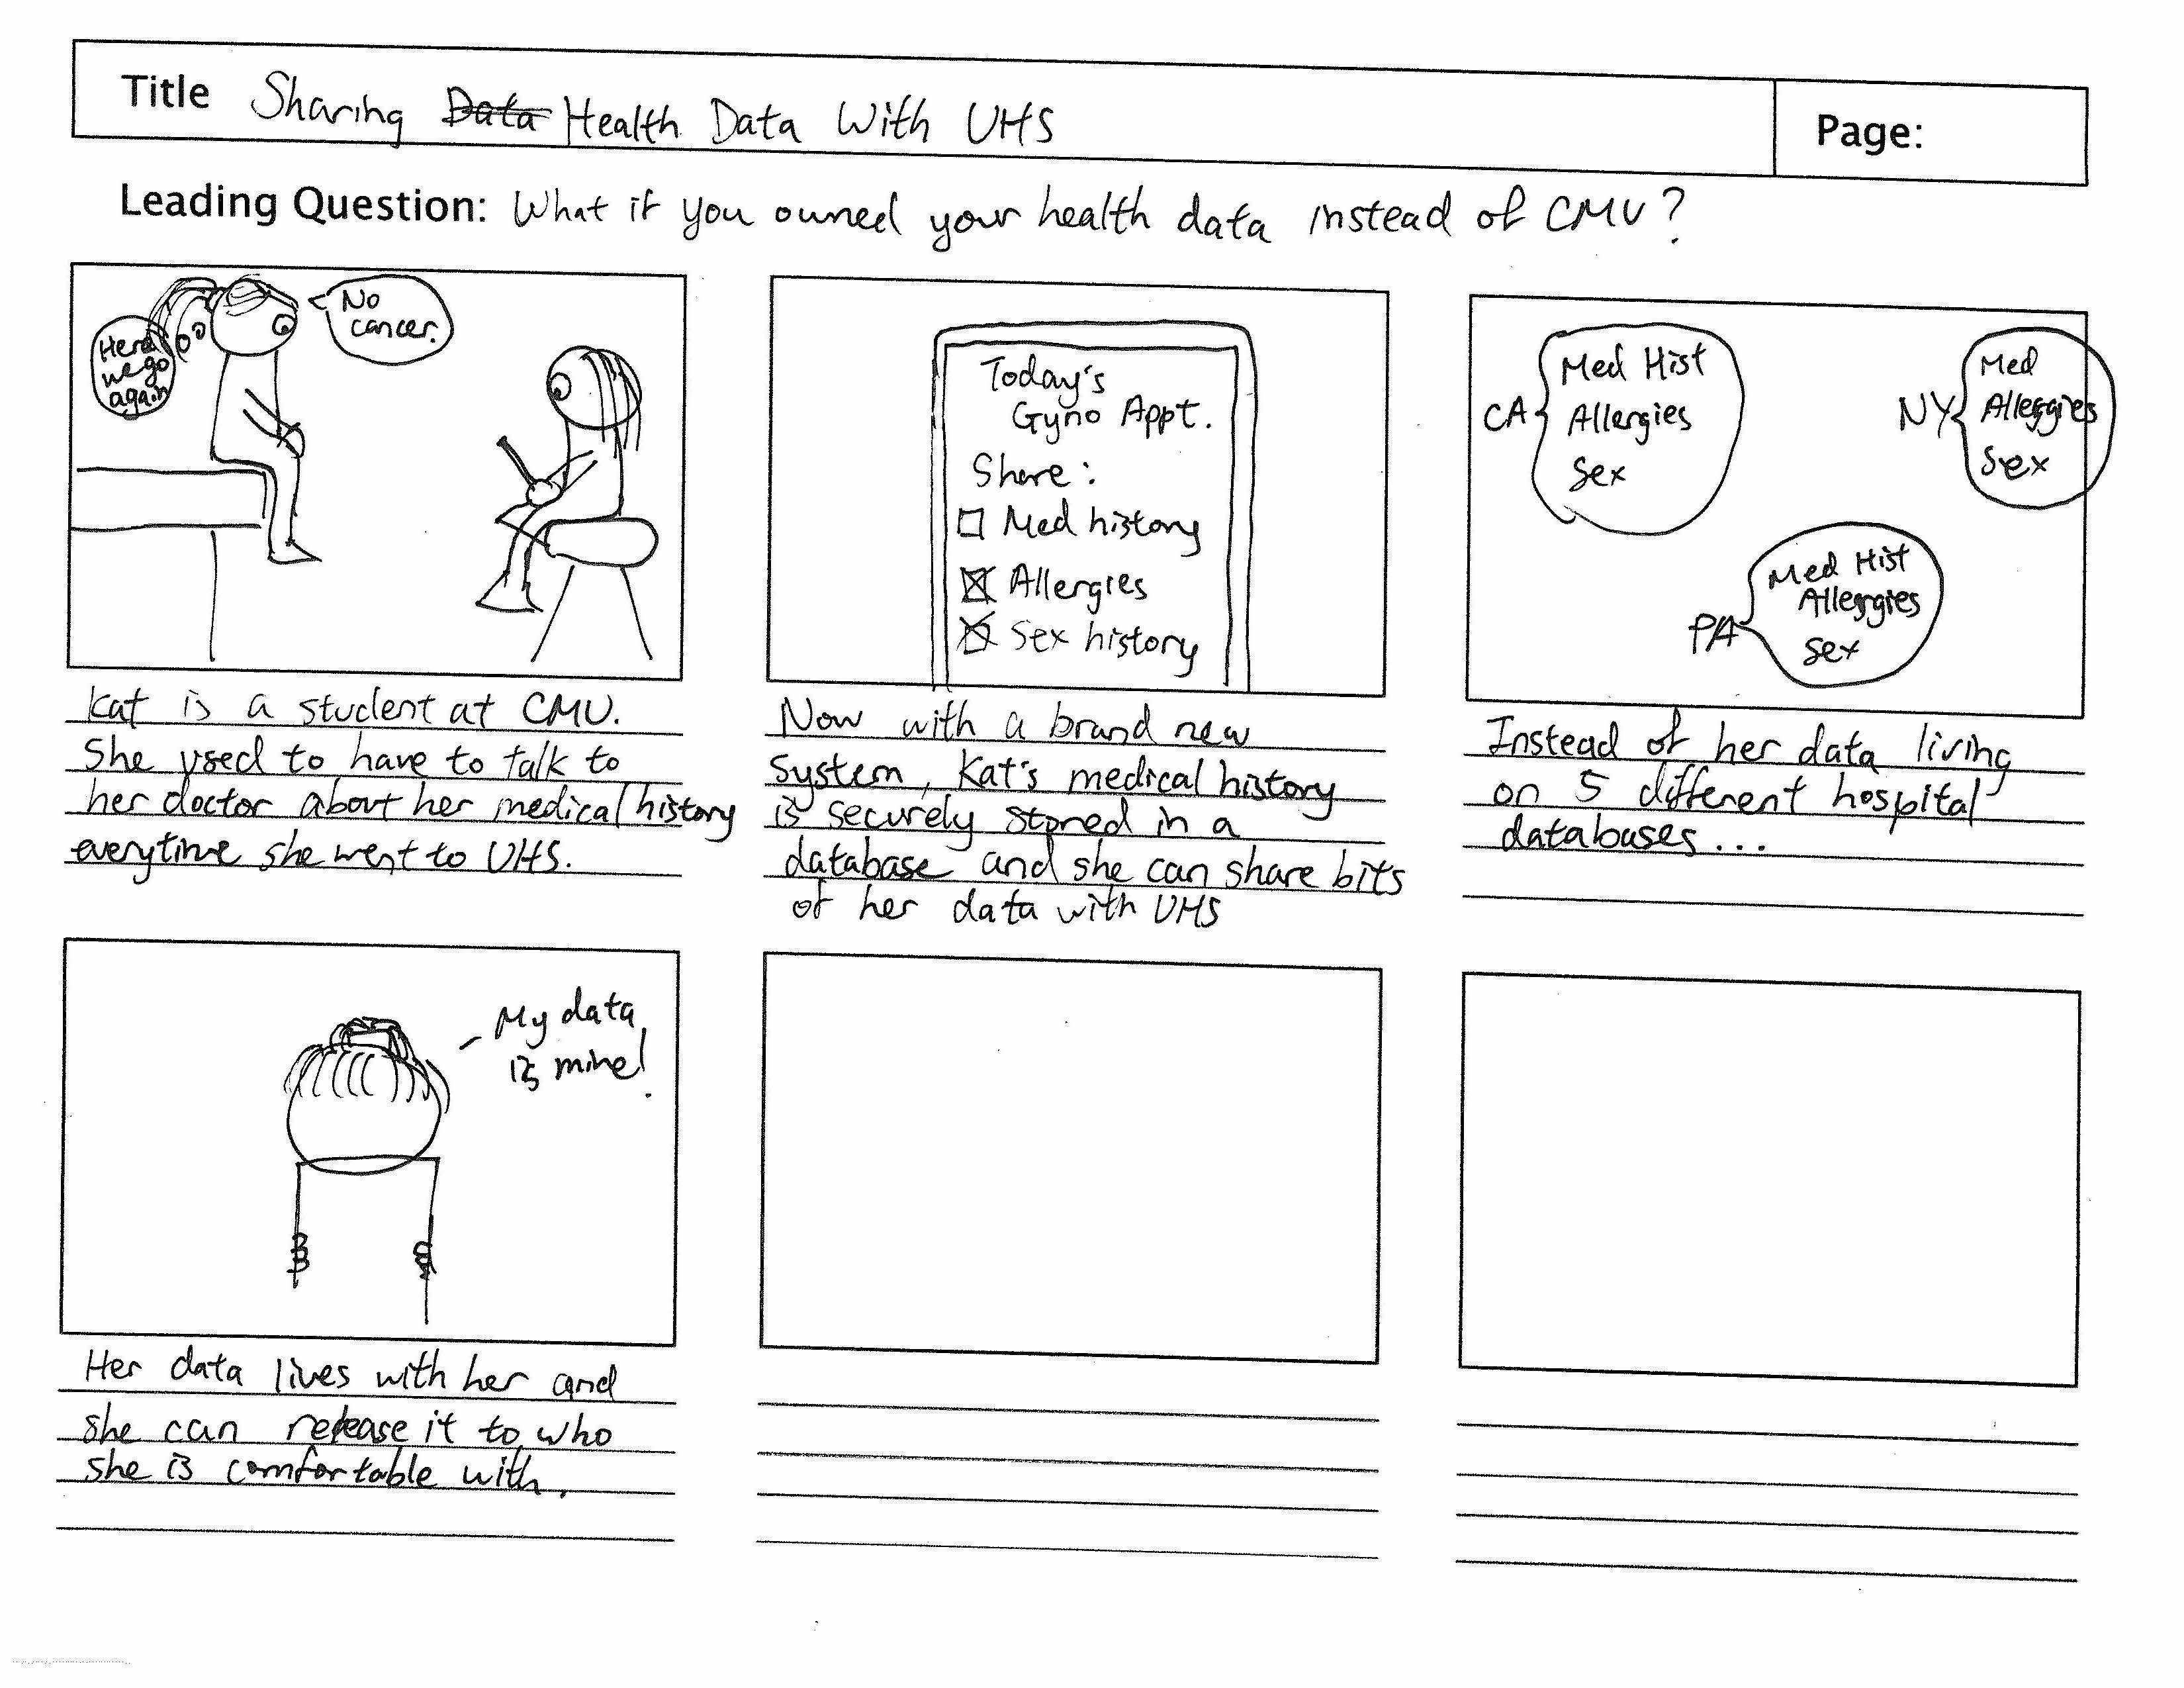 Title Sharing Data Health Data With UHS
Page:
Leading Question: What if you owned your health data instead of CMU?
Here we go again
No cancer.
Kat is a student at CMU.
She used to have to talk to
her doctor about her medical history
everytime she went to UHS.
Today's
Gyno Appt.
Share:
Med history
Allergies
Sex history
Now with a brand new
system, Kat's medical history
is securely stored in a
database and she can share bits
of her data with UHS
CA
Med Hist
Allergies
Sex
NY
Med
Alleggies
Sex
PA
Med Hist
Allergies
Sex
Instead of her data living
on 5 different hospital
databases...
My data
is mine!
Her data lives with her and
she can release it to who
she is comfortable with.